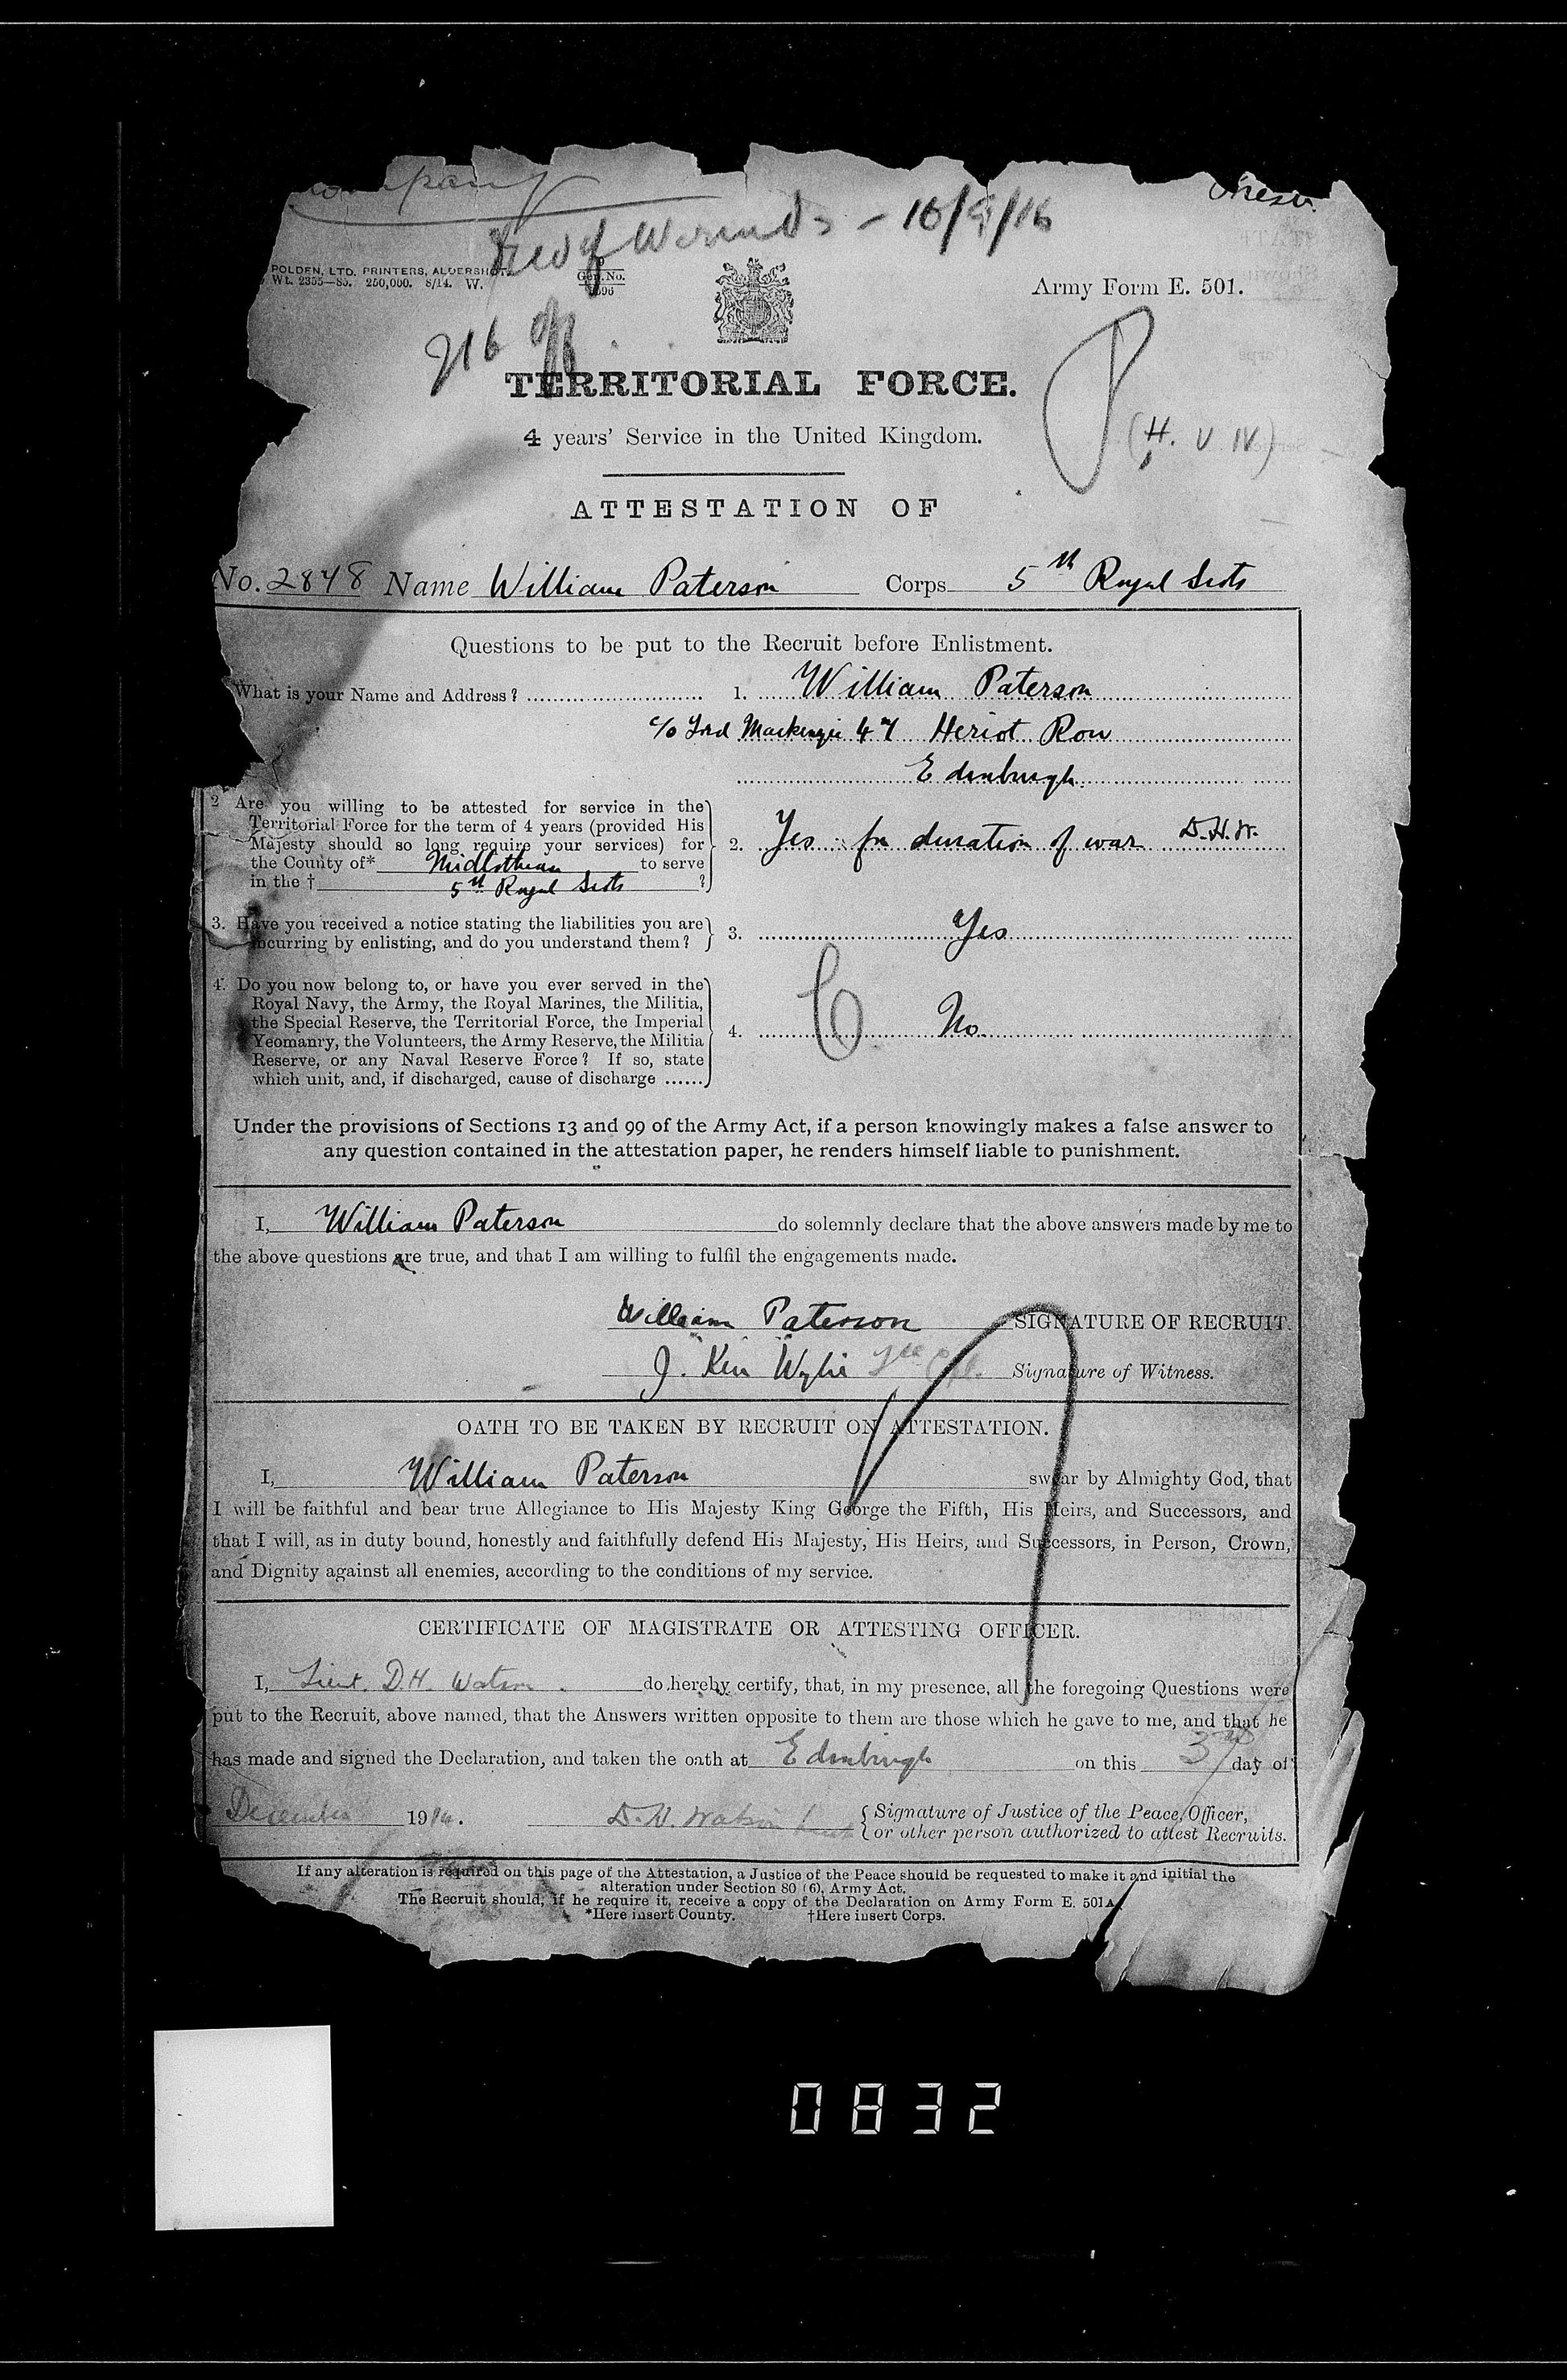 ompany
Died of Wounds - 10/9/16
POLDEN, LTD. PRINTERS, ALDERSHOT.
Wt. 2355—85. 250,000. 8/14. W.
Gen. No.
Army Form E. 501.
216
TERRITORIAL FORCE.
4 years' Service in the United Kingdom.
P
(H. V IV)
ATTESTATION OF
No. 2848 Name William Paterson Corps 5th Royal Scots
Questions to be put to the Recruit before Enlistment.
What is your Name and Address? 1. William Paterson
c/o Lord Mackenzie 47 Heriot Row
Edinburgh.
2 Are you willing to be attested for service in the
Territorial Force for the term of 4 years (provided His
Majesty should so long require your services) for
the County of* Midlothian to serve
in the † 5th Royal Scots ?
2. Yes for duration of war D.H.W.
3. Have you received a notice stating the liabilities you are
incurring by enlisting, and do you understand them?
3. Yes
4. Do you now belong to, or have you ever served in the
Royal Navy, the Army, the Royal Marines, the Militia,
the Special Reserve, the Territorial Force, the Imperial
Yeomanry, the Volunteers, the Army Reserve, the Militia
Reserve, or any Naval Reserve Force? If so, state
which unit, and, if discharged, cause of discharge ......
4. No
Under the provisions of Sections 13 and 99 of the Army Act, if a person knowingly makes a false answer to
any question contained in the attestation paper, he renders himself liable to punishment.
I, William Paterson do solemnly declare that the above answers made by me to
the above questions are true, and that I am willing to fulfil the engagements made.
William Paterson SIGNATURE OF RECRUIT.
J. Ker Wylie Signature of Witness.
OATH TO BE TAKEN BY RECRUIT ON ATTESTATION.
I, William Paterson swear by Almighty God, that
I will be faithful and bear true Allegiance to His Majesty King George the Fifth, His Heirs, and Successors, and
that I will, as in duty bound, honestly and faithfully defend His Majesty, His Heirs, and Successors, in Person, Crown,
and Dignity against all enemies, according to the conditions of my service.
CERTIFICATE OF MAGISTRATE OR ATTESTING OFFICER.
I, Lieut. D.H. Watson. do hereby certify, that, in my presence, all the foregoing Questions were
put to the Recruit, above named, that the Answers written opposite to them are those which he gave to me, and that he
has made and signed the Declaration, and taken the oath at Edinburgh on this 3rd day of
December 1914. D.H. Watson Lieut
Signature of Justice of the Peace, Officer,
or other person authorized to attest Recruits.
If any alteration is required on this page of the Attestation, a Justice of the Peace should be requested to make it and initial the
alteration under Section 80 (6), Army Act.
The Recruit should, if he require it, receive a copy of the Declaration on Army Form E. 501A.
*Here insert County. †Here insert Corps.
0832